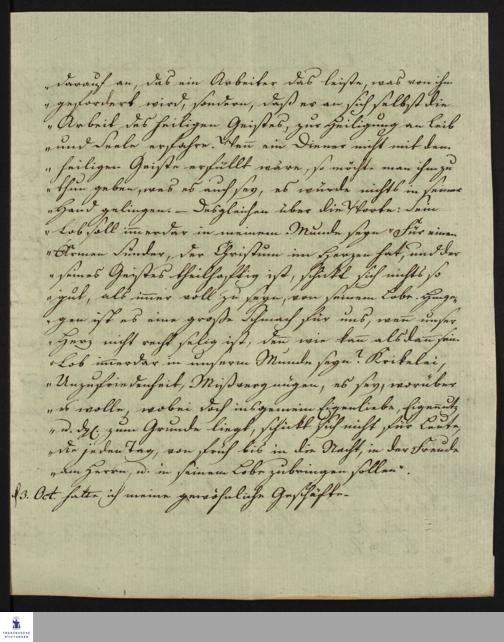 „darauf an, das ein Arbeiter das leiste, was von ihm
„gefordert wird, sondern, daß er an sich selbst die
„Arbeit des heiligen Geistes, zur Heiligung an Leib
„und Seele erfahre. Wen ein Diener nicht mit dem
„heiligen Geiste erfüllt wäre, so möchte man ihm zu
„thun geben, was es auch sey, es würde nichts in seiner
„Hand gelingen. — Desgleichen über die Worte: Sein
„Lob soll immerdar in meinem Munde seyn „Für einen
„Armen Sünder, der Christum im Herzen hat, und der
„seines Geistes theilhafftig ist, schikt sich nichts so
„gut, als immer voll zu seyn, von seinem Lobe. Hinge-
„gen ist es eine große Schmach für uns, wen unser
„Herz nicht recht selig ist, den wie kan alsdann sein
„Lob immerdar in unserm Munde seyn? Krikelei,
„Unzufriedenheit, Mißvergnügen, es sey, worüber
„es wolle, wobei doch insgemein Eigenliebe, Eigennutz
„u. dgl. zum Grunde liegt, schikt sich nicht für Leute,
„die jeden Tag, von früh bis in die Nacht, in der Freude
„am Herrn, u. in seinem Lobe zubringen sollen".
d 3. Oct. hatte ich meine gewöhnliche Geschäfte.
FRANCKESCHE
STIFTUNGEN